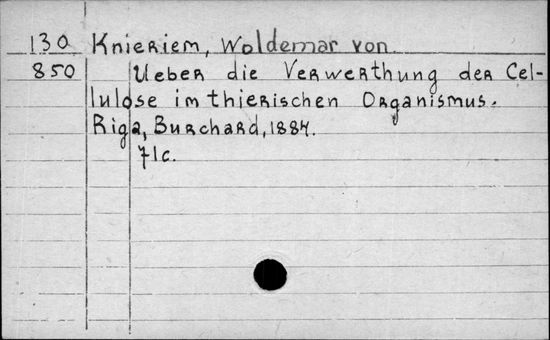 130 Knieriem, Woldemar von
850 Ueber die Verwerthung der Cel-
lulose im thierischen Organismus.
Riga, Burchard, 1884.
71c.